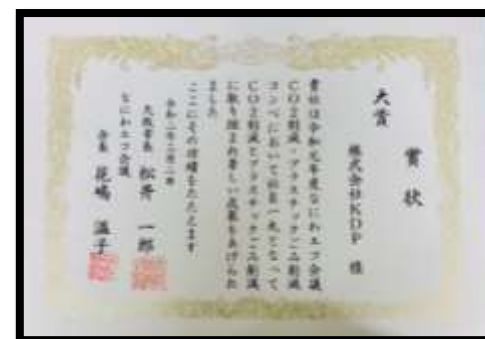 賞状
大賞
株式会社KDP 様
貴社は令和元年度なにわエコ会議
CO2削減・プラスチックごみ削減
コンペにおいて社員一丸となって
CO2削減とプラスチックごみ削減
に取り組まれ著しい成果をあげられ
ました
ここにその功績をたたえます
令和二年二月
大阪市長 松井 一郎
なにわエコ会議
会長 花嶋 温子